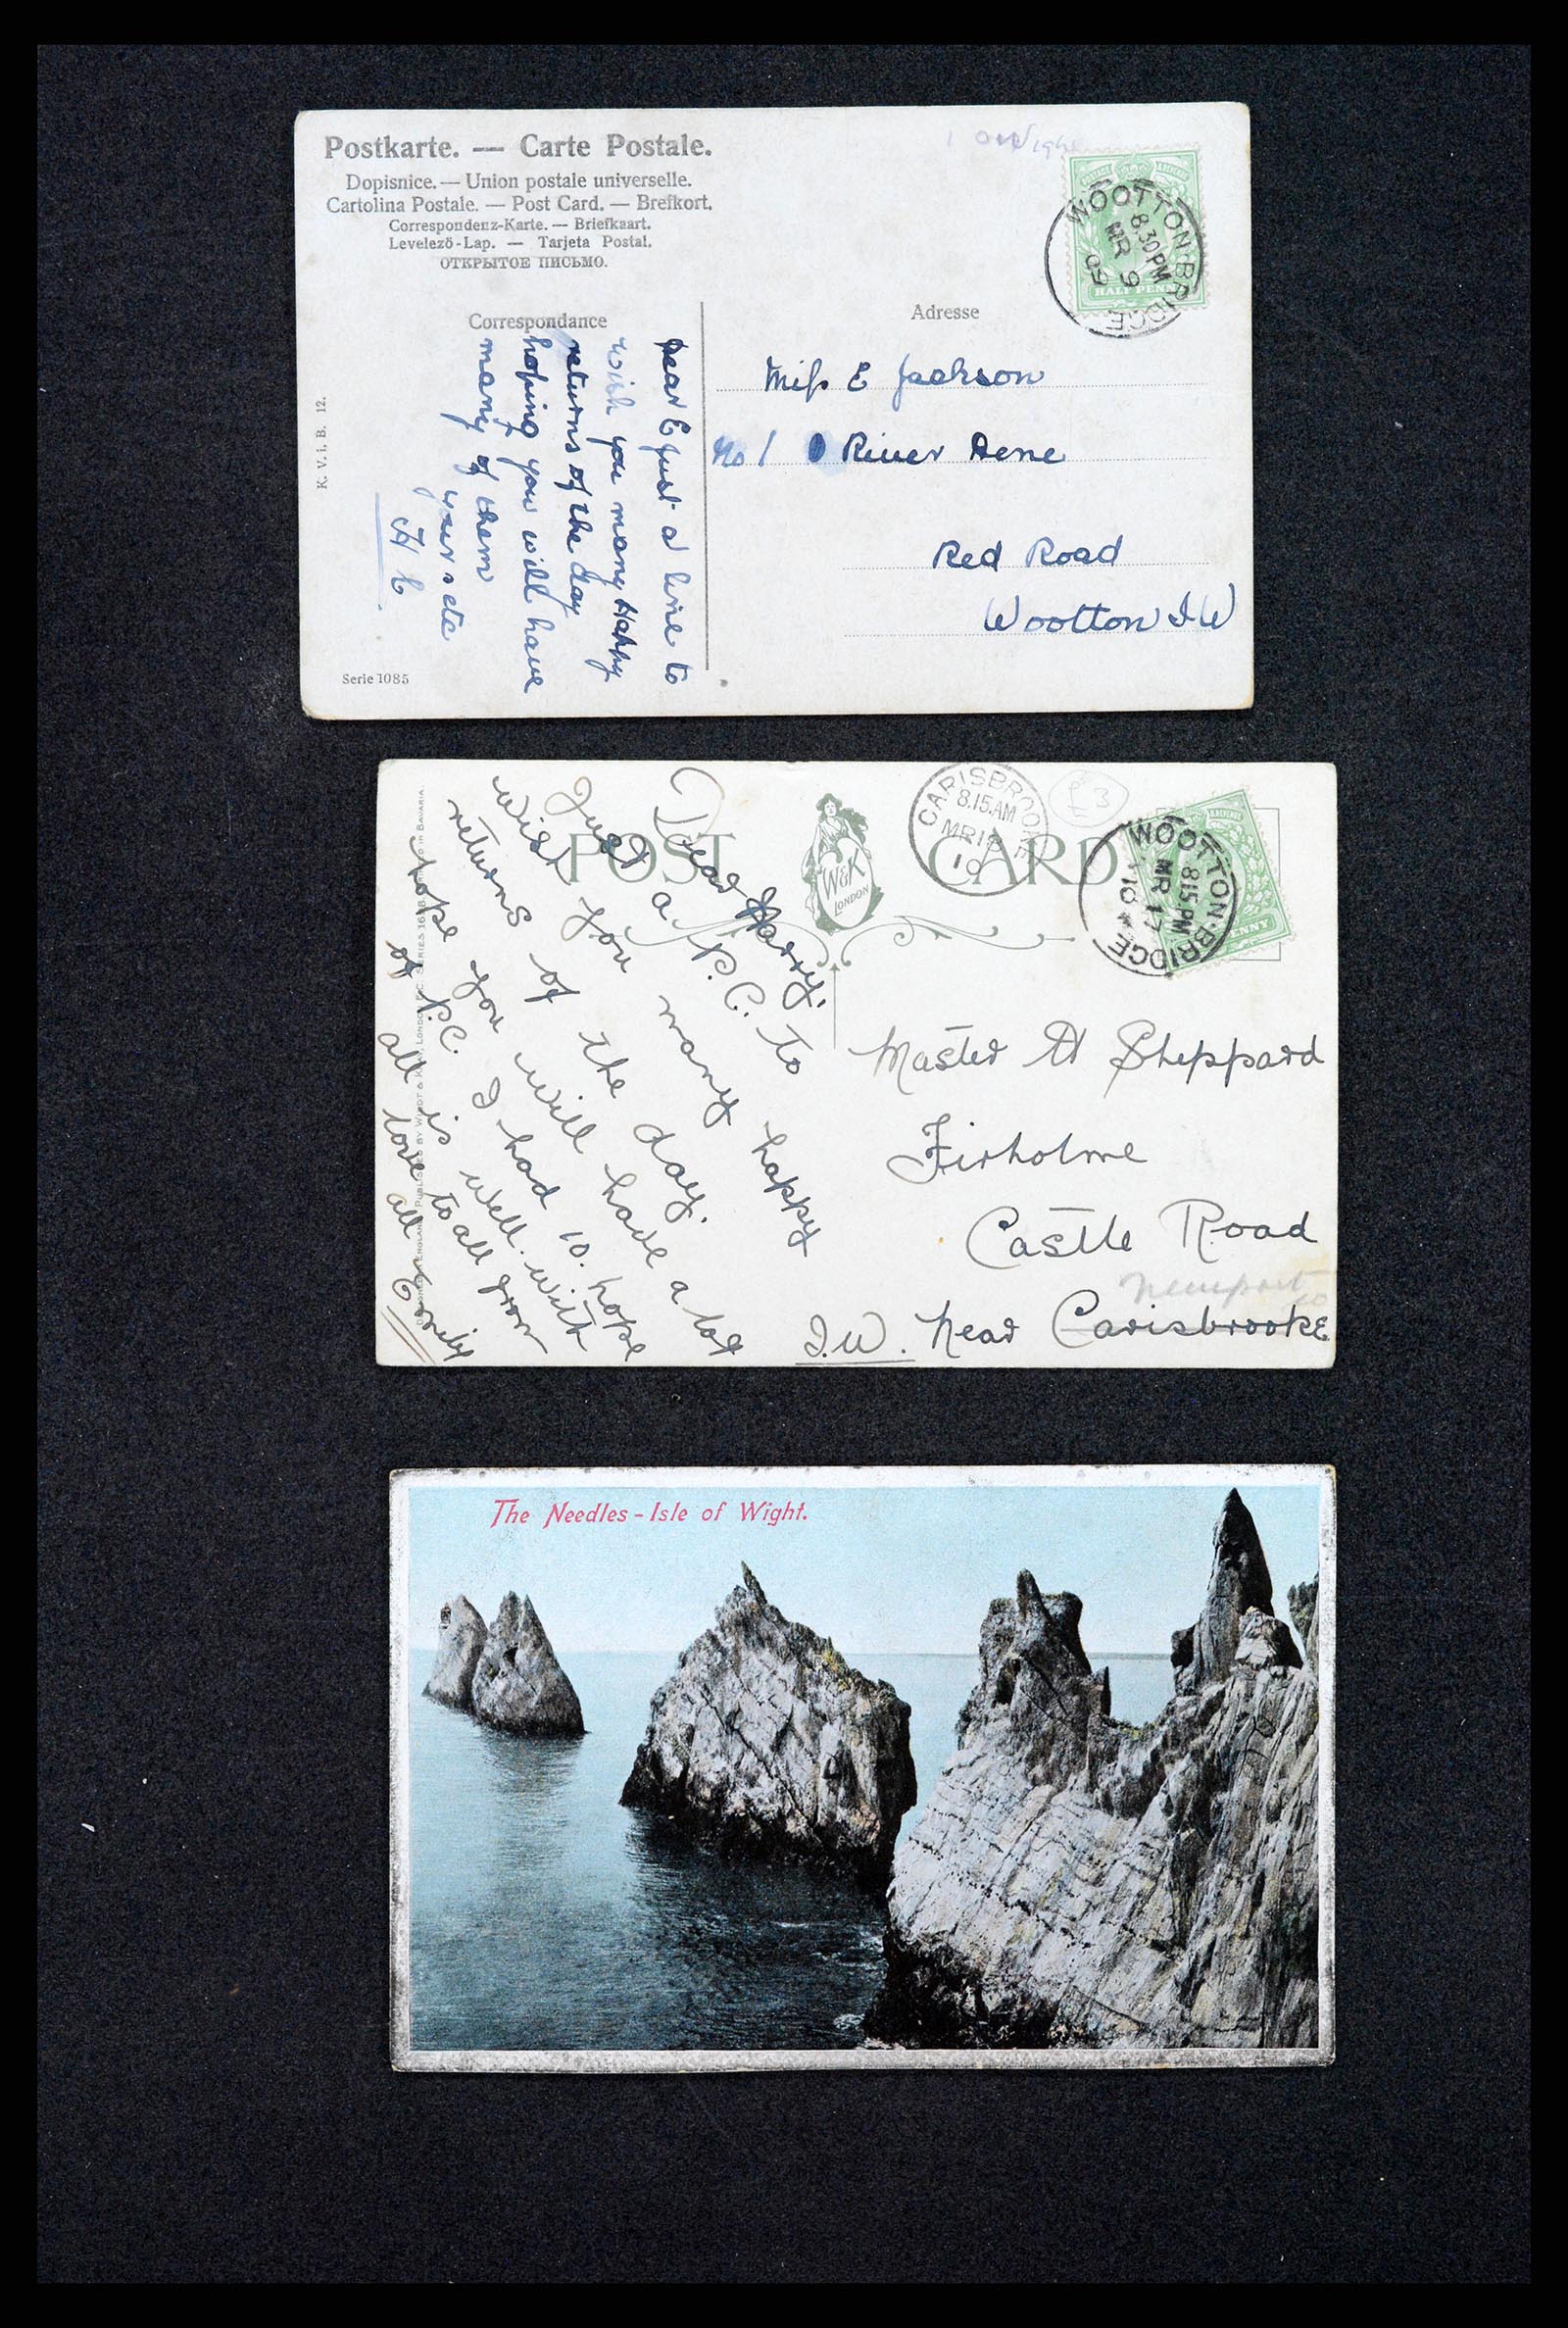 Postkarte. — Carte Postale.
Dopisnice. — Union postale universelle.
Cartolina Postale. — Post Card. — Brefkort.
Correspondenz-Karte. — Briefkaart.
Levelező-Lap. — Tarjeta Postal.
ОТКРЫТОЕ ПИСЬМО.
WOOTTON-BRIDGE
8.30PM
MR 9
09
HALF PENNY
Correspondance
Adresse
Dear E just a line to
wish you many Happy
returns of the day
hoping you will have
many of them
yours etc
H C
Miss E Jackson
No 1 River Dene
Red Road
Wootton I W
K. V. i. B. 12.
Serie 1085
POST CARD
W&K
LONDON
CARISBROOKE
8.15.AM
MR 18
10
£3
WOOTTON-BRIDGE
8.15 PM
MR 17
10
Dear Harry.
Just a P.C. to
wish you many happy
returns of the day.
hope you will have a lot
of P.C. I had 10. hope
all is well. with
love to all from
all Emily
Master H Sheppard
Firholme
Castle Road
Newport
I.W. Near Carisbrooke
The Needles - Isle of Wight.